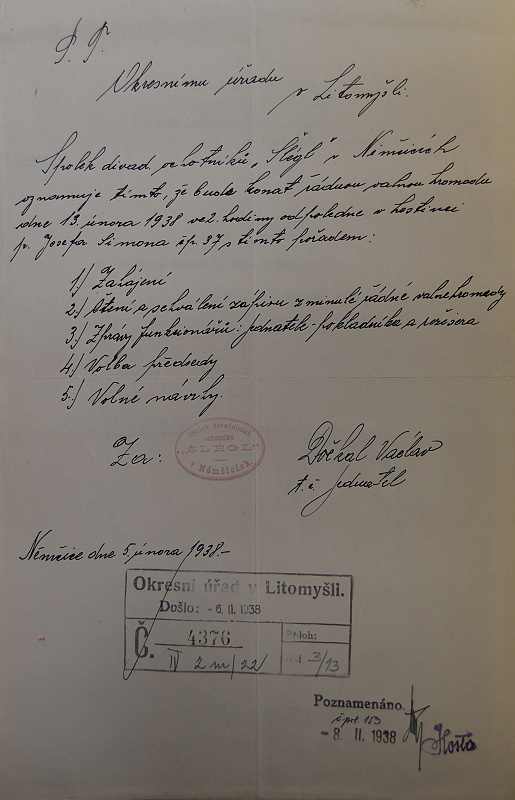 P. P.
Okresnímu úřadu
v Litomyšli.
Spolek divad. ochotníků „Šlégl" v Němčicích
oznamuje tímto, že bude konat řádnou valnou hromadu
dne 13. února 1938 ve 2. hodiny odpoledne v hostinci
p. Josefa Simona čp. 37 s tímto pořadem:
1.) Zahájení
2.) Čtení a schválení zápisu z minulé řádné valné hromady
3.) Zprávy funkcionářů: jednatele - pokladníka a režisera
4.) Volba předsedy
5.) Volné návrhy.
Za:
Spolek divadelních
ochotníků
„ŠLÉGL"
v Němčicích
Dočkal Václav
t. č. jednatel
Němčice dne 5. února 1938.-
Okresní úřad v Litomyšli.
Došlo: - 6. II. 1938
Č. 4376
IV 2 m/22
Příloh:
3/13
Poznamenáno.
153
- 8. II. 1938